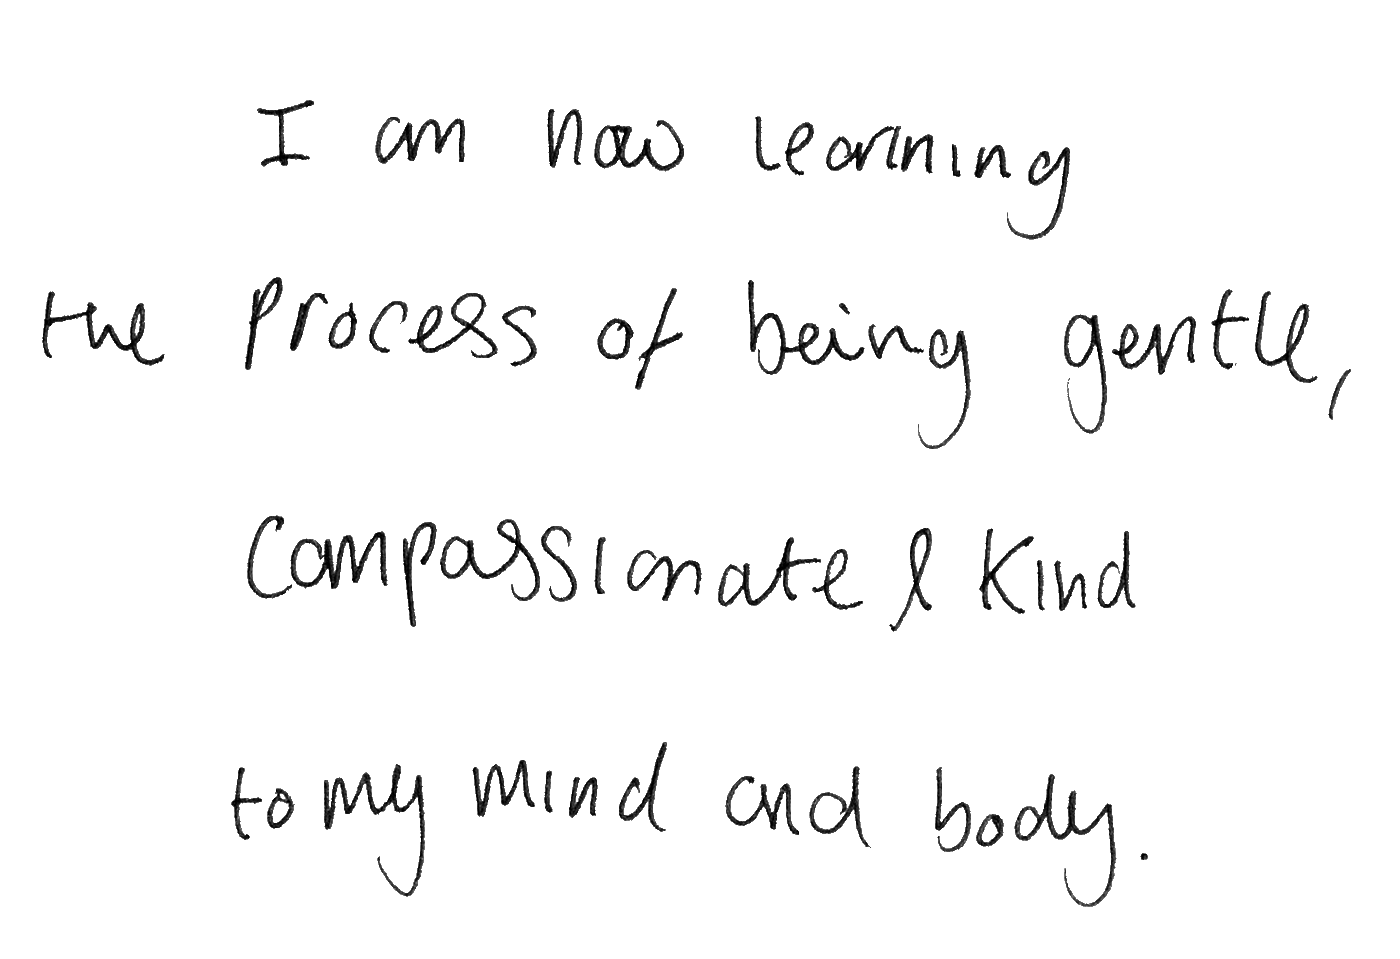 I am now learning
the process of being gentle,
Compassionate & Kind
to my mind and body.